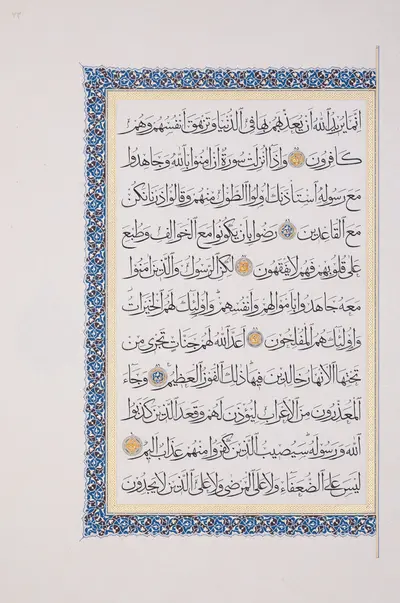 ٢٣
انما يريد الله ان يعذبهم بها في الدنيا وتزهق انفسهم وهم
كافرون واذا انزلت سورة ان امنوا بالله وجاهدوا
مع رسوله استاذنك اولوا الطول منهم وقالوا ذرنا نكن
مع القاعدين رضوا بان يكونوا مع الخوالف وطبع
على قلوبهم فهم لا يفقهون لكن الرسول والذين امنوا
معه جاهدوا باموالهم وانفسهم واولئك لهم الخيرات
واولئك هم المفلحون اعد الله لهم جنات تجري من
تحتها الانهار خالدين فيها ذلك الفوز العظيم وجاء
المعذرون من الاعراب ليؤذن لهم وقعد الذين كذبوا
الله ورسوله سيصيب الذين كفروا منهم عذاب اليم
ليس على الضعفاء ولا على المرضى ولا على الذين لا يجدون